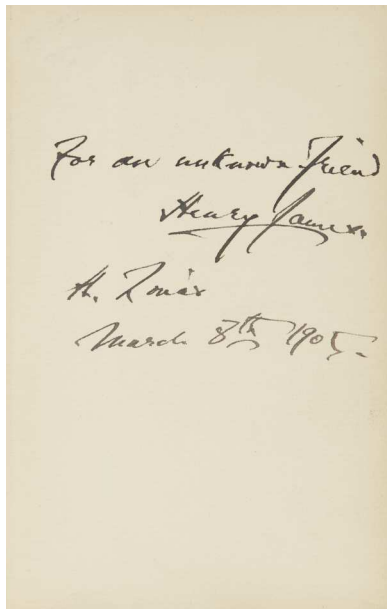 For an unknown friend
Henry James.
St. Louis
March 8th 1905.